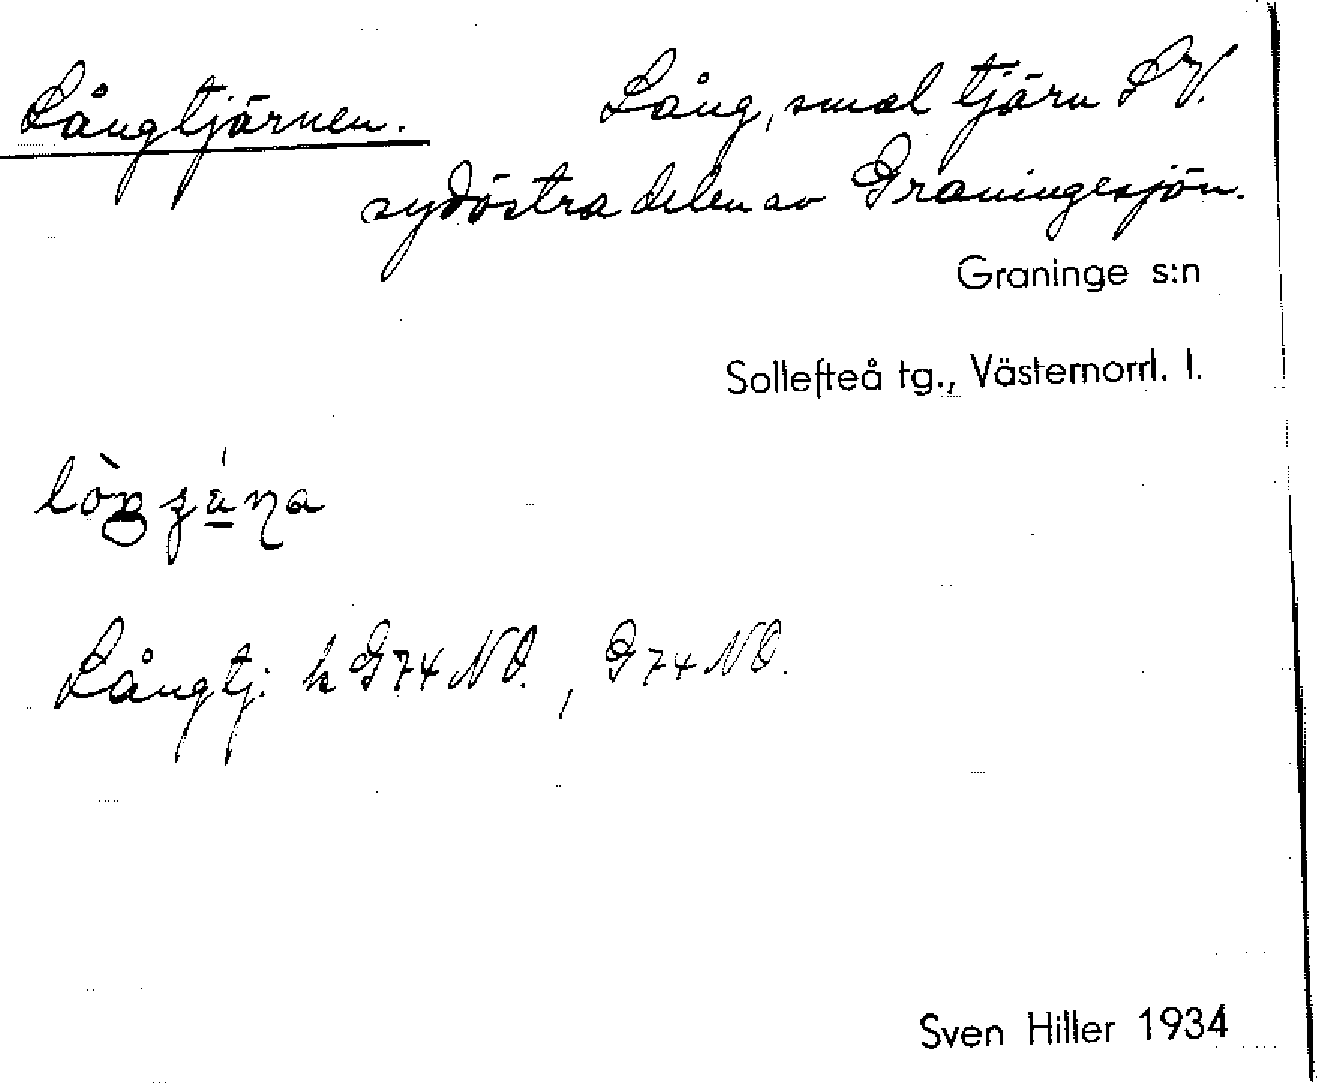 Långtjärnen. Lång, smal tjärn S V.
sydöstra delen av Graningesjön.
Graninge s:n
Sollefteå tg., Västernorrl. l.
Långtj. k G74 NO., G74 NO.
Sven Hiller 1934